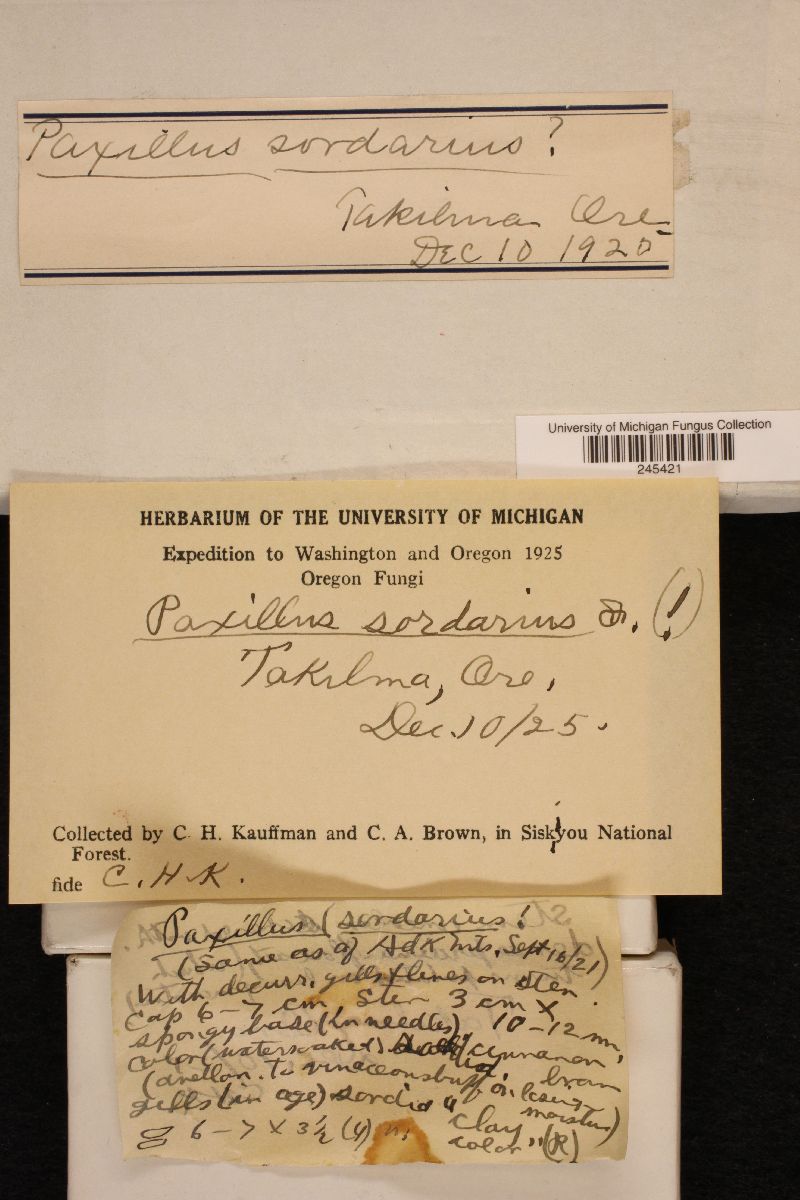 Paxillus sordarius?
Takilma Ore
Dec 10 1925
University of Michigan Fungus Collection
245421
HERBARIUM OF THE UNIVERSITY OF MICHIGAN
Expedition to Washington and Oregon 1925
Oregon Fungi
Paxillus sordarius (!)
Takilma, Ore,
Dec. 10/25.
Collected by C. H. Kauffman and C. A. Brown, in Siskiyou National
Forest.
fide C. H. K.
Paxillus (sordarius!
(Same as of Adk Mts, Sept 16/21)
With decurr. gills & lines on stem.
Cap 6-7 cm, Stem 3 cm x
spongy base (in needles) 10-12 mm,
color (watersoaked) cinnamon
(avellan. to vinaceous buff on losing brown
gills (in age) sordid " moisture)
6-7 x 3½ (4) clay
color" (R)